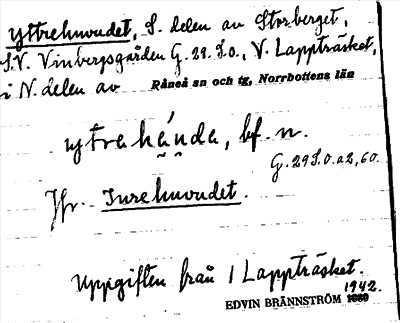 Yttrehuvudet, S. delen av Storberget,
S.V. Vinbergsgården G. 29. S.o., V. Lappträsket,
i N. delen av Råneå sn och tg, Norrbottens län
ytrahá̰nda̰, bf. n.
G. 29 S.o. a2, 60.
Jfr. Inrehuvudet.
Uppgiften från 1 Lappträsket.
1942.
EDVIN BRÄNNSTRÖM 1939